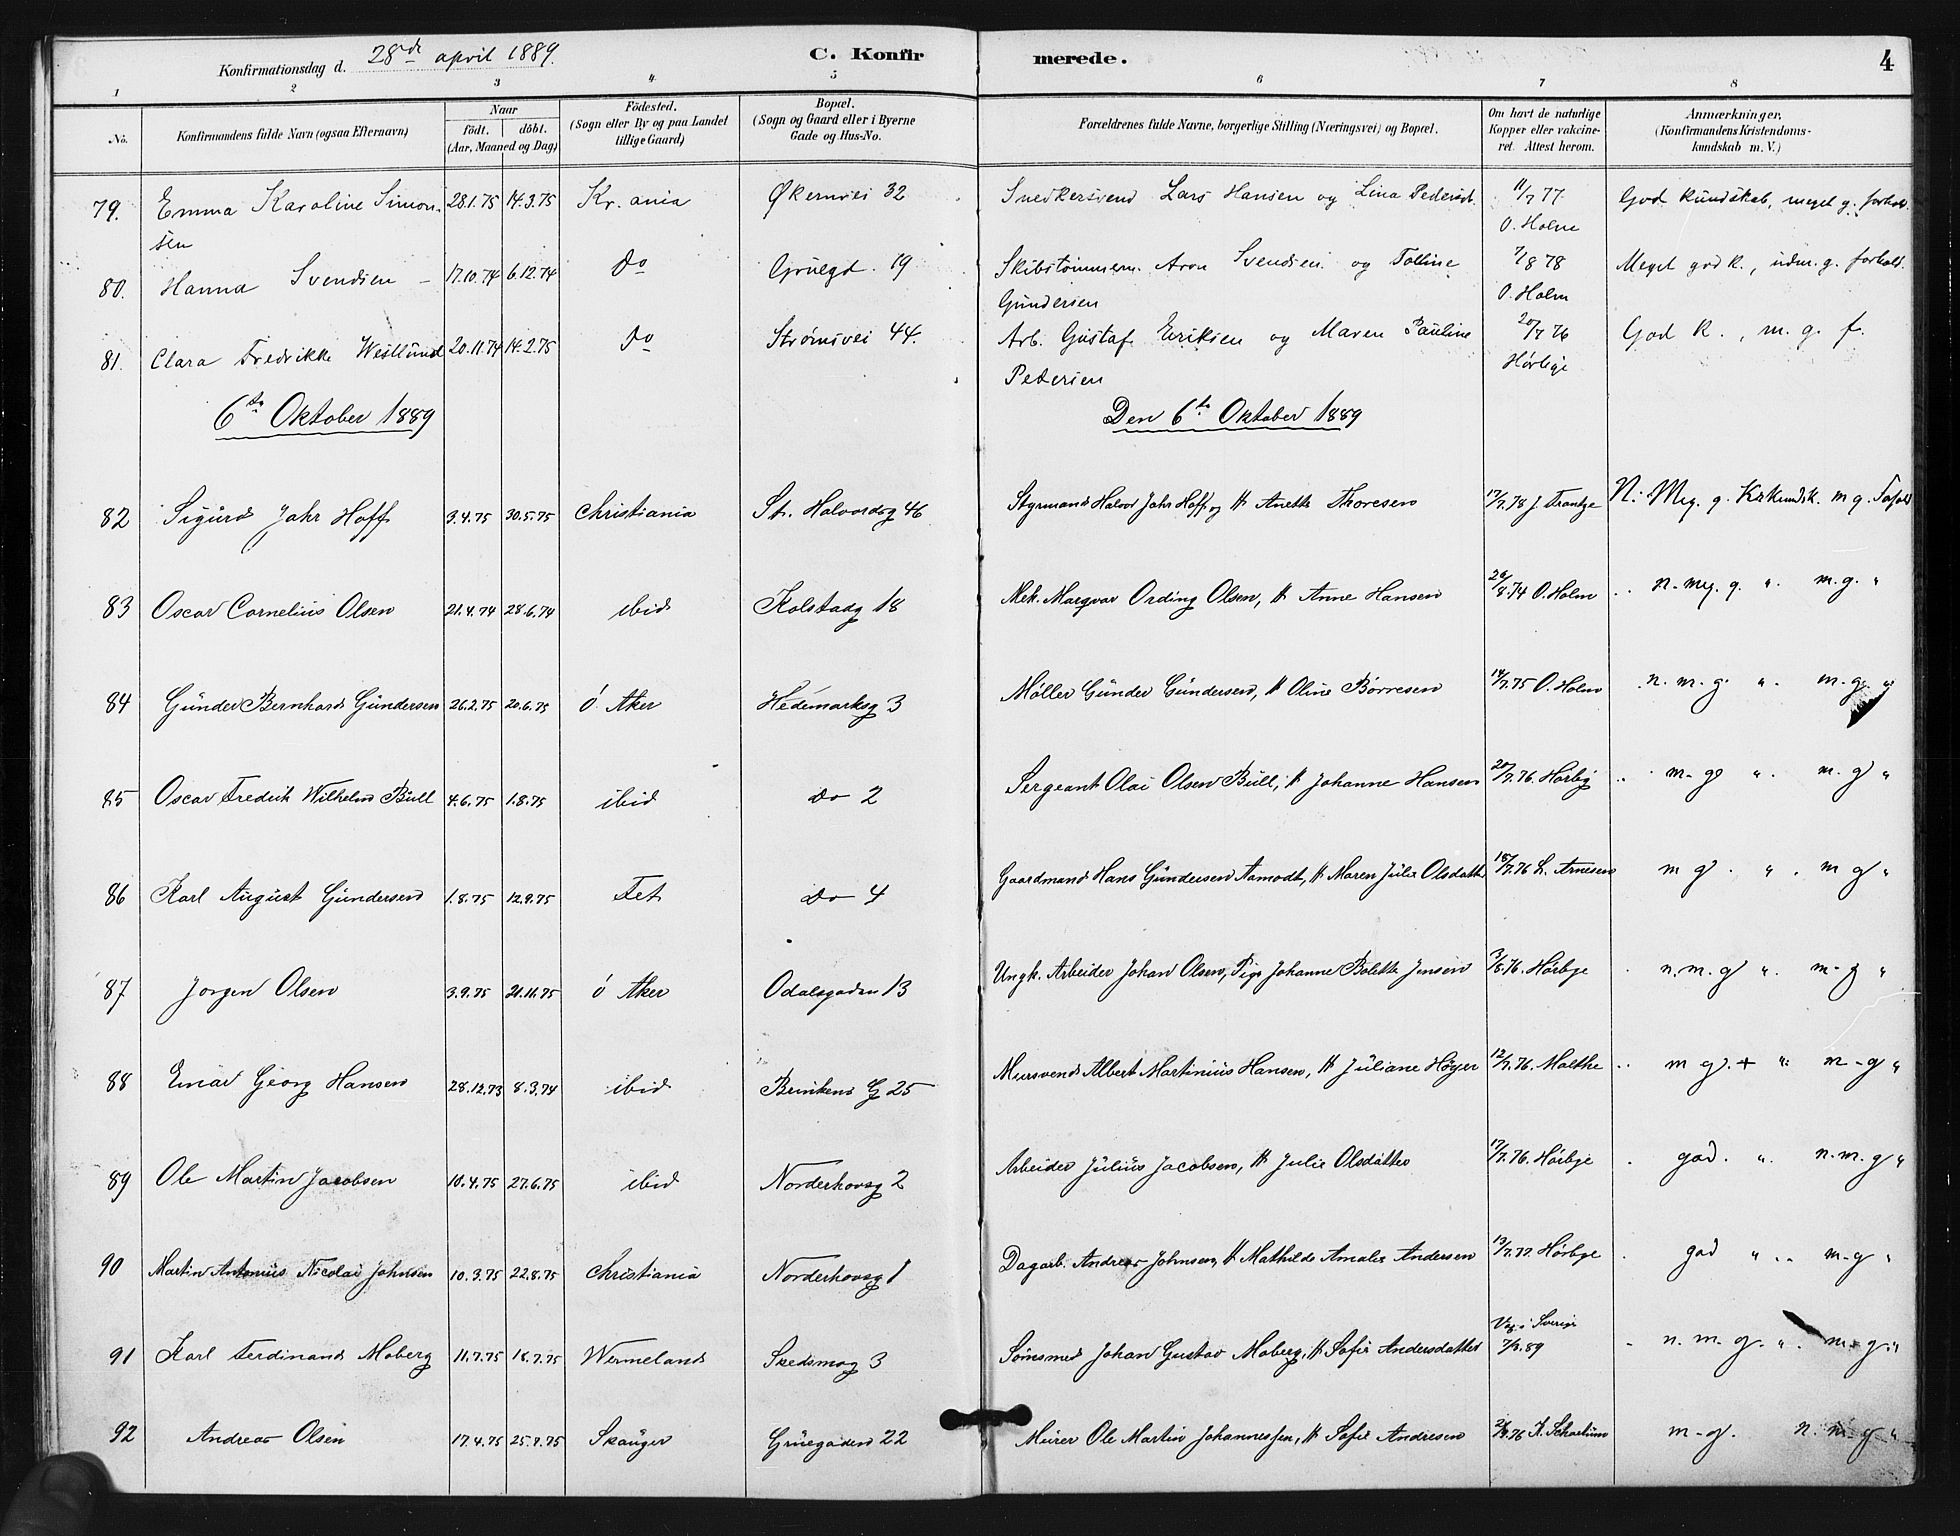 Konfirmationsdag d. 28de april 1889. C. Konfirmerede. 4
1 2 3 4 5 6 7 8
No. Konfirmandens fulde Navn (ogsaa Efternavn) Naar födt. döbt. (Aar, Maaned og Dag) Födested. (Sogn eller By og paa Landet tillige Gaard) Bopæl. (Sogn og Gaard eller i Byerne Gade og Hus-No. Forældrenes fulde Navne, borgerlige Stilling (Næringsvei) og Bopæl. Om havt de naturlige Kopper eller vakcineret. Attest herom. Anmærkninger. (Konfirmandens Kristendomskundskab m. V.)
79. Emma Karoline Simonsen 28.1.75 14.3.75 Kr.ania Økernvei 32 Snedkersvend Lars Hansen og Lina Pedersdt. 11/7 77. O. Holm God kundskab, meget g. forhold.
80. Hanna Svendsen 17.10.74 6.12.74 do Gruegd. 19 Skibstømmerm. Aron Svendsen og Tolline Gundersen 7/8 78 O. Holm Meget god k., udm. g. forhold.
81. Clara Fredrikke Westlund 20.11.74 14.2.75 do Strømsvei 44. Arb. Gustaf Eriksen og Maren Pauline Pedersen 20/7 76 Hørbye God k., m. g. f.
6te Oktober 1889 Den 6te Oktober 1889
82 Sigurd Jahr Hoff 3.4.75 30.5.75 Christiania St. Halvordsg 46 Styrmand Halvor Jahr Hoff og H Anette Thoresen 17/7.78 J. Frantze N: Meg. g. Krkundsk. m g. Forhold
83 Oscar Cornelius Olsen 21.4.74 28.6.74 ibid Kolstadg 18 Mek. Margvar Ording Olsen, H Anne Hansen 26/8.74 O. Holm n. meg. g. " m. g. "
84 Gunder Bernhard Gundersen 26.2.75 20.6.75 Ø Aker Hedemarksg 3 Møller Gunder Gundersen, H Oline Børresen 14/7.75 O. Holm n. m. g. " m. g. "
85 Oscar Fredrik Wilhelm Bull 4.6.75 1.8.75 ibid do 2 Sergeant Olai Olsen Bull, H Johanne Hansen 20/7.76. Hørby m-g " m. g "
86 Karl August Gundersen 1.8.75 12.9.75 Fet do 4 Gaardmand Hans Gundersen Aamodt, H Maren Julie Olsdatter 18/7.76 L. Arnesen m g. " m g "
87 Jørgen Olsen 3.9.75 21.11.75 Ø Aker Odalsgaden 13 Ungk. Arbeider Johan Olsen, Pige Johanne Bolette Jensen 3/8.76. Hørbye n. m. g " m-g "
88 Einar Georg Hansen 28.12.73 8.3.74 ibid Brinkens G 25 Mursvend Albert Martinius Hansen, H Juliane Høyer 12/7.76. Malthe m g. + " m-g "
89 Ole Martin Jacobsen 10.4.75 27.6.75 ibid Norderhovsg 2 Arbeider Julius Jacobsen, H Julie Olsdatter 17/7.76. Hørbye god. " n. m. g "
90 Martin Antonius Nicolai Johnsen 10.3.75 22.8.75 Christiania Norderhovsg 1 Dagarb. Andreas Johnsen, H Mathilde Amalie Andersen 13/7.77. Hørbye god " m-g "
91 Karl Ferdinand Moberg 11.7.75 18.7.75 Wermeland Skedsmog 3 Sømsmed Johan Gustav Moberg, H Sofie Andersdatter i Sverige n. m. g. " m-g. "
92 Andreas Olsen 17.4.75 Skauger Gruegaden 22 Murer Ole Martin Johannessen, H Sofie Andresen m-g. n. m-g "